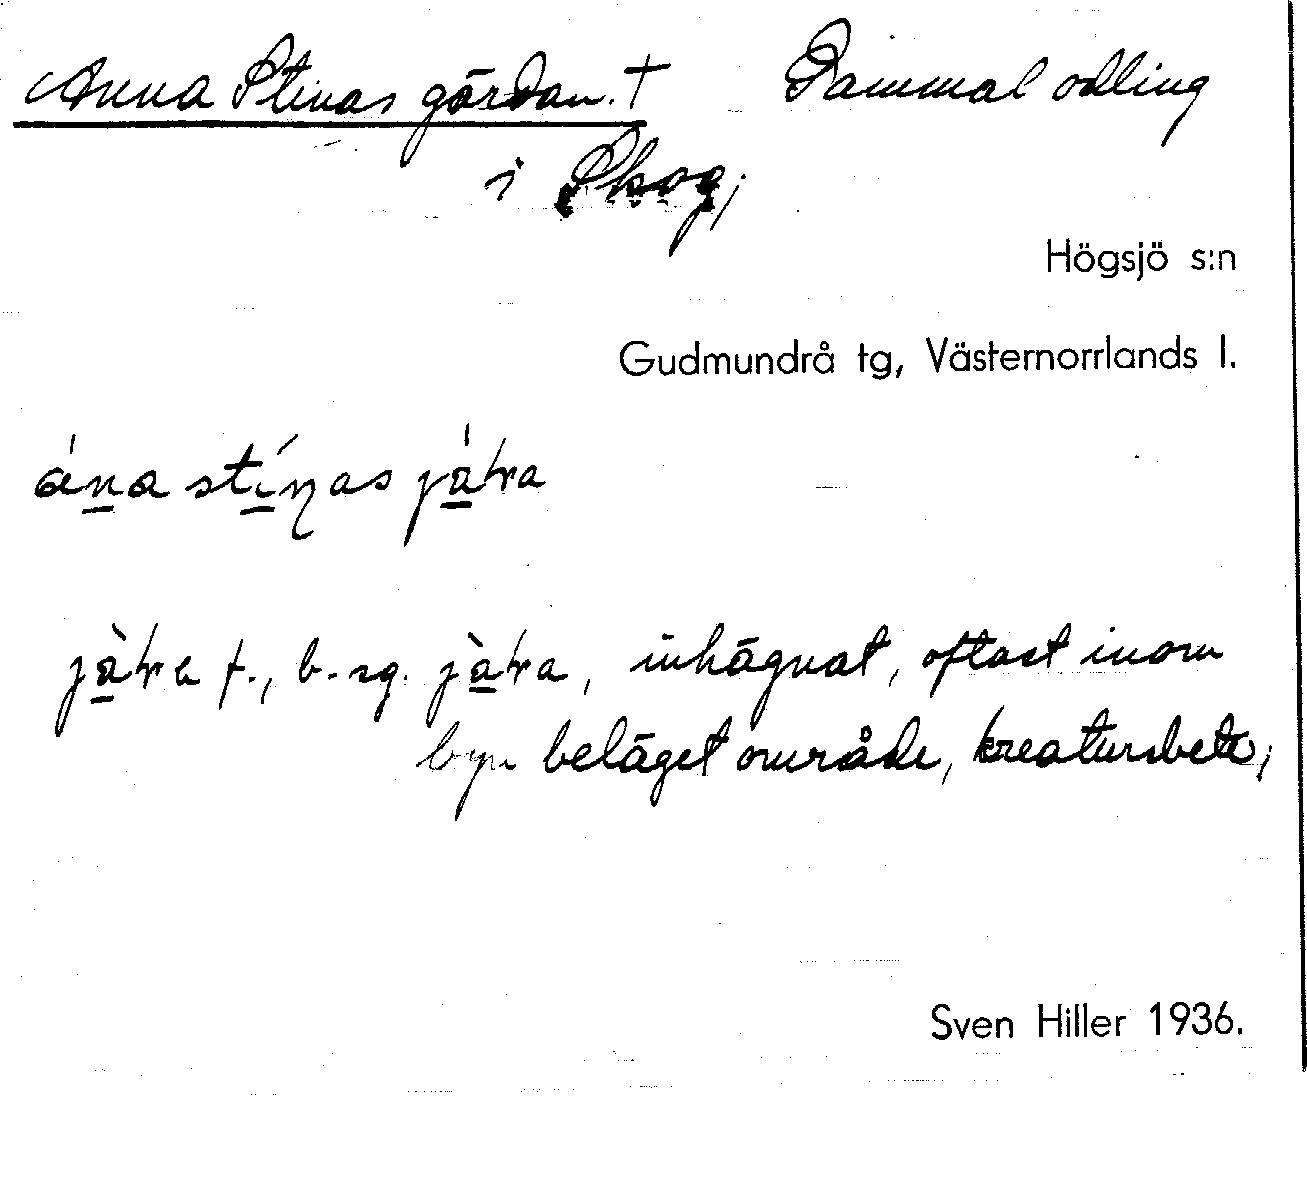 Anna Stinas gärdan. † Gammal odling
i Skog;
Högsjö s:n
Gudmundrå tg, Västernorrlands l.
ána stínas
f., b. sg. inhägnat, oftast inom
byn beläget område, kreatursbete;
Sven Hiller 1936.